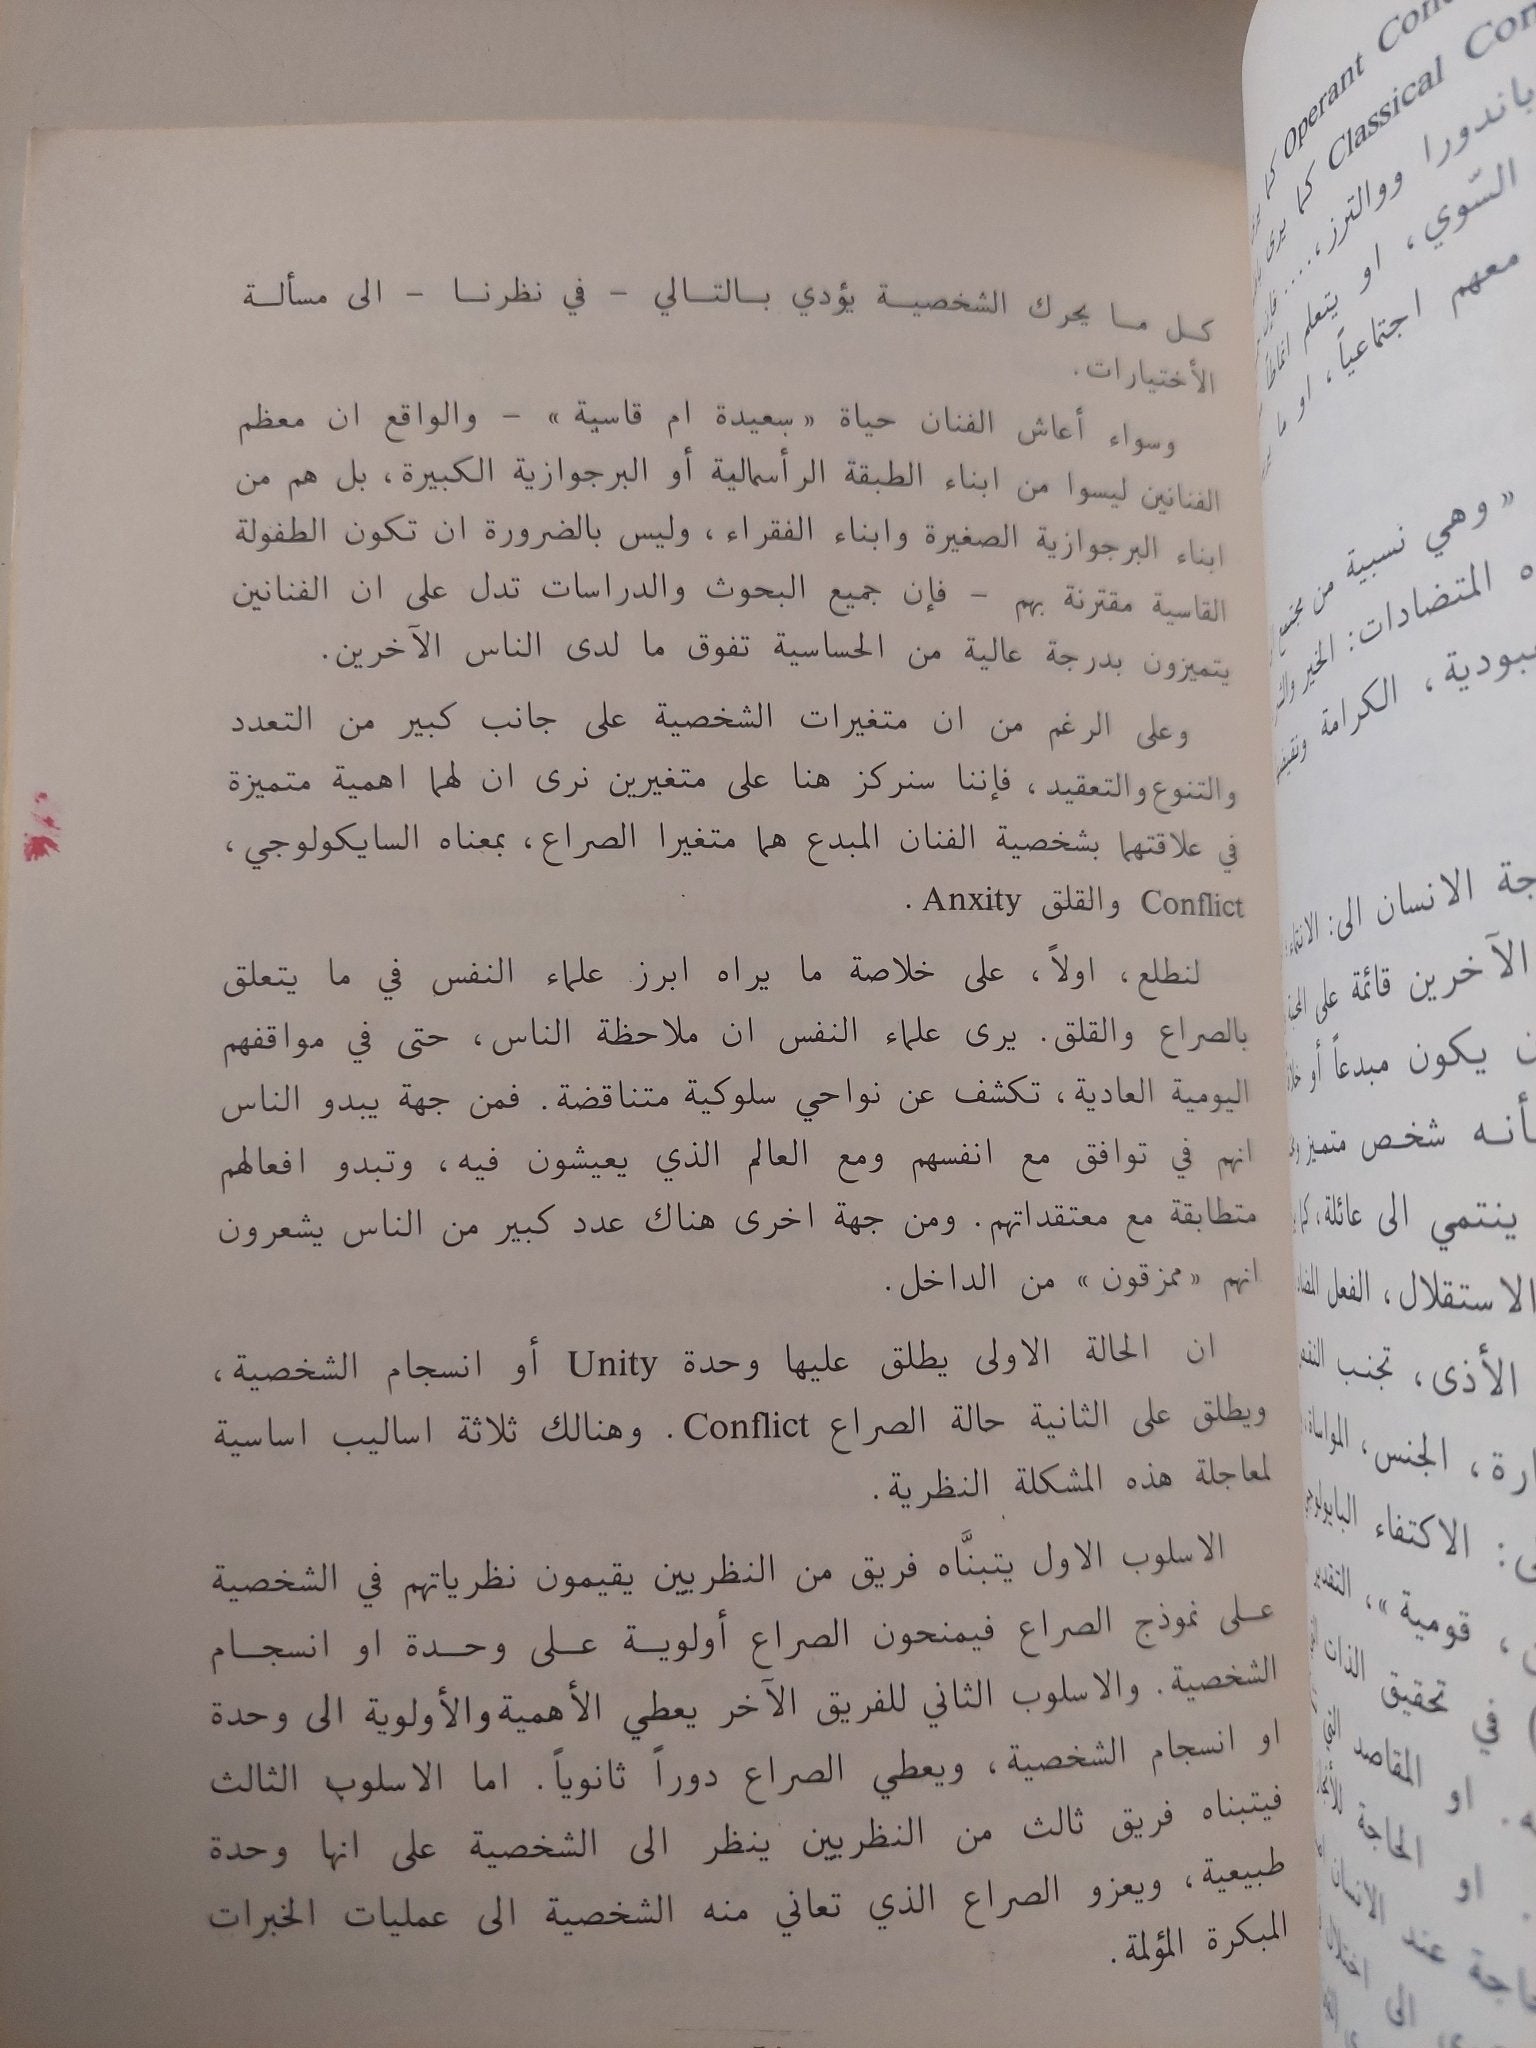 كل ما يحرك الشخصية يؤدي بالتالي - في نظرنا - الى مسألة
الأختيارات.
وسواء أعاش الفنان حياة «سعيدة ام قاسية» - والواقع ان معظم
الفنانين ليسوا من ابناء الطبقة الرأسمالية أو البرجوازية الكبيرة، بل هم من
ابناء البرجوازية الصغيرة وابناء الفقراء، وليس بالضرورة ان تكون الطفولة
القاسية مقترنة بهم - فإن جميع البحوث والدراسات تدل على ان الفنانين
يتميزون بدرجة عالية من الحساسية تفوق ما لدى الناس الآخرين.
وعلى الرغم من ان متغيرات الشخصية على جانب كبير من التعدد
والتنوع والتعقيد، فإننا سنركز هنا على متغيرين نرى ان لهما اهمية متميزة
في علاقتهما بشخصية الفنان المبدع هما متغيرا الصراع، بمعناه السايكولوجي،
Conflict والقلق Anxity.
لنطلع، اولاً، على خلاصة ما يراه ابرز علماء النفس في ما يتعلق
بالصراع والقلق. يرى علماء النفس ان ملاحظة الناس، حتى في مواقفهم
اليومية العادية، تكشف عن نواحي سلوكية متناقضة. فمن جهة يبدو الناس
انهم في توافق مع انفسهم ومع العالم الذي يعيشون فيه، وتبدو افعالهم
متطابقة مع معتقداتهم. ومن جهة اخرى هناك عدد كبير من الناس يشعرون
انهم «ممزقون» من الداخل.
ان الحالة الاولى يطلق عليها وحدة Unity أو انسجام الشخصية،
ويطلق على الثانية حالة الصراع Conflict. وهنالك ثلاثة اساليب اساسية
لمعاجلة هذه المشكلة النظرية.
الاسلوب الاول يتبنَّاه فريق من النظريين يقيمون نظرياتهم في الشخصية
على نموذج الصراع فيمنحون الصراع أولوية على وحدة او انسجام
الشخصية. والاسلوب الثاني للفريق الآخر يعطي الأهمية والأولوية الى وحدة
او انسجام الشخصية، ويعطي الصراع دوراً ثانوياً. اما الاسلوب الثالث
فيتبناه فريق ثالث من النظريين ينظر الى الشخصية على انها وحدة
طبيعية، ويعزو الصراع الذي تعاني منه الشخصية الى عمليات الخبرات
المبكرة المؤلمة.
Operant
كما يرى Classical
باندورا ووالترز،...
السّوي، او يتعلم
معهم اجتماعياً، او ما
«وهي نسبية من مجتمع
المتضادات: الخير
الكرامة
الانسان الى: الانتماء:
الآخرين قائمة على
يكون مبدعاً أو
شخص متميز
ينتمي الى عائلة،
الاستقلال، الفعل
الأذى، تجنب
الجنس،
الاكتفاء
قومية»،
في تحقيق الذات
او المقاصد
او الحاجة